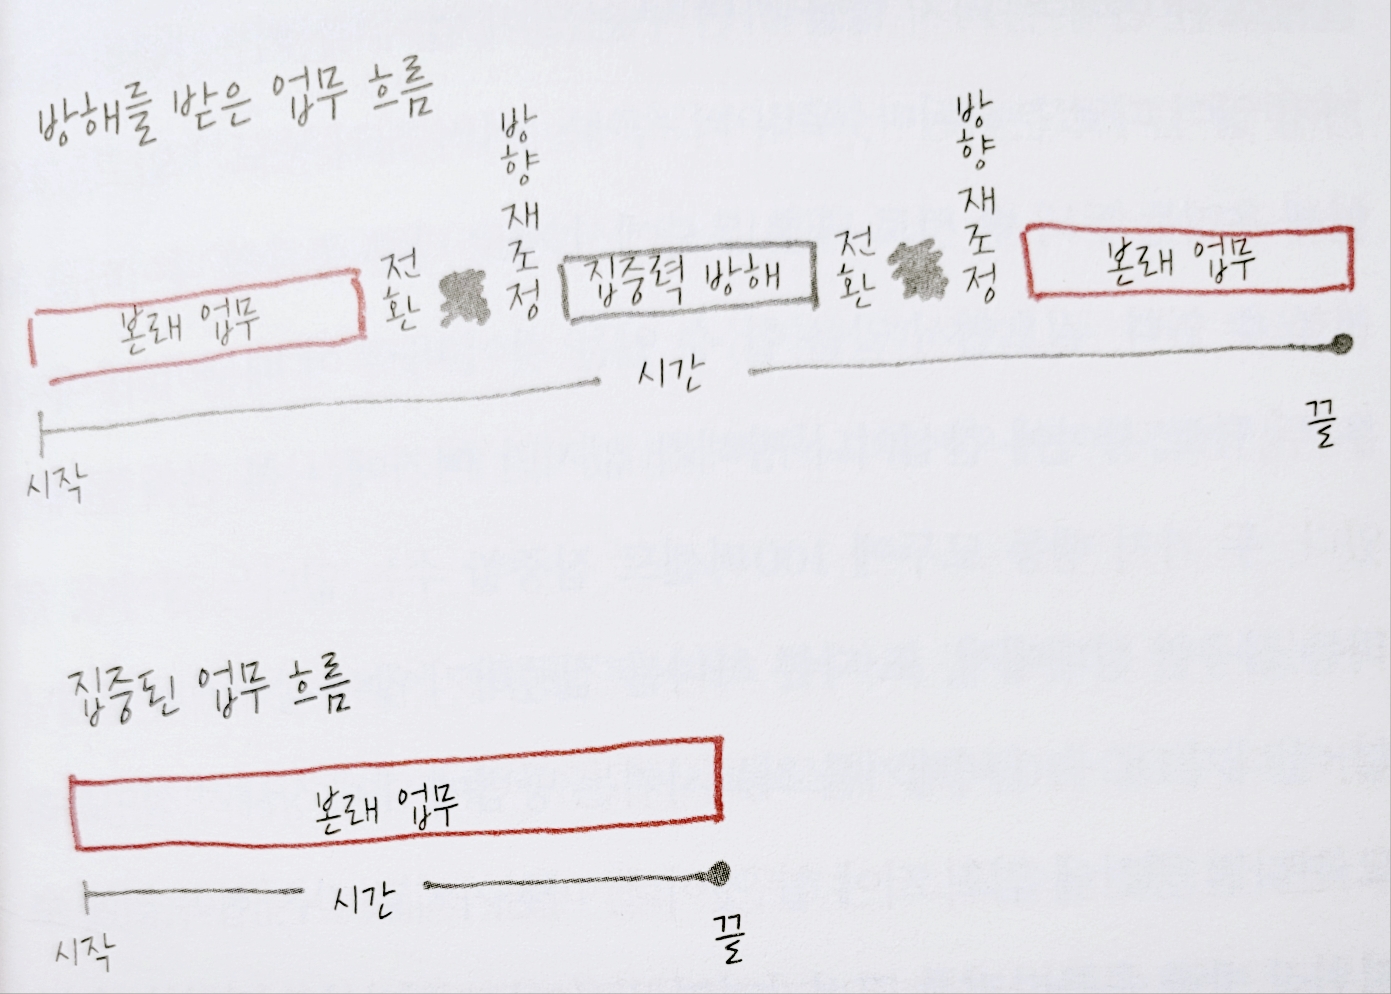 방해를 받은 업무 흐름
본래 업무
전환
방향 재조정
집중력 방해
전환
방향 재조정
본래 업무
시간
시작
끝
집중된 업무 흐름
본래 업무
시간
시작
끝